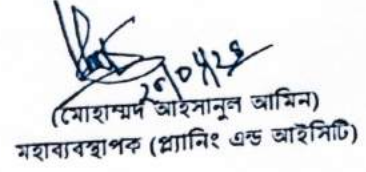 (মোহাম্মদ আহসানুল আমিন)
মহাব্যবস্থাপক (প্ল্যানিং এন্ড আইসিটি)